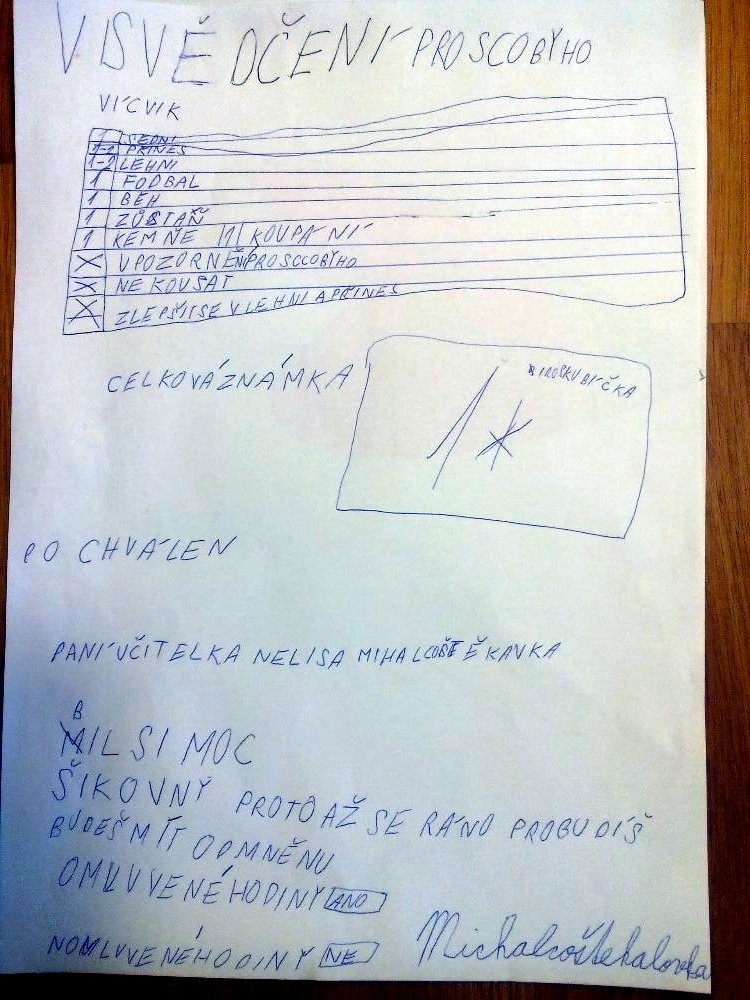 VISVĚDČENÍ PRO SCOBYHO
VÍCVIK
1 SEDNI
1-2 PRINES
1-2 LEHNI
1 FODBAL
1 BĚH
1 ZŮSTAŇ
1 KEMNĚ 11 KOUPÁNÍ
X UPOZORNĚNÍ PRO SCOBYHO
X NE KOUSAT
X ZLEPŠIT SE V LEHNI A PŘINES
CELKOVÁ ZNÁMKA
1*
PO CHVÁLEN
PANÍ UČITELKA NELISA MIHALCOŠTĚKAVKA
BIL SI MOC
ŠIKOVNÝ PROTO AŽ SE RÁNO PROBUDÍŠ
BUDEŠ MÍT ODMNĚNU
OMLUVENÉ HODINY ANO
NOMLUVENÉ HODINY NE
Michalcoštekalovka